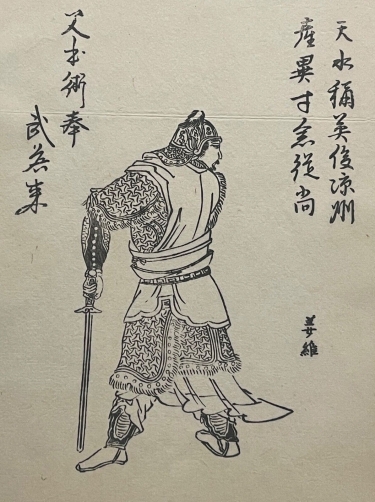 天水稱英俊凉州
產異才系從尚
父出術奉
武侯來
姜維